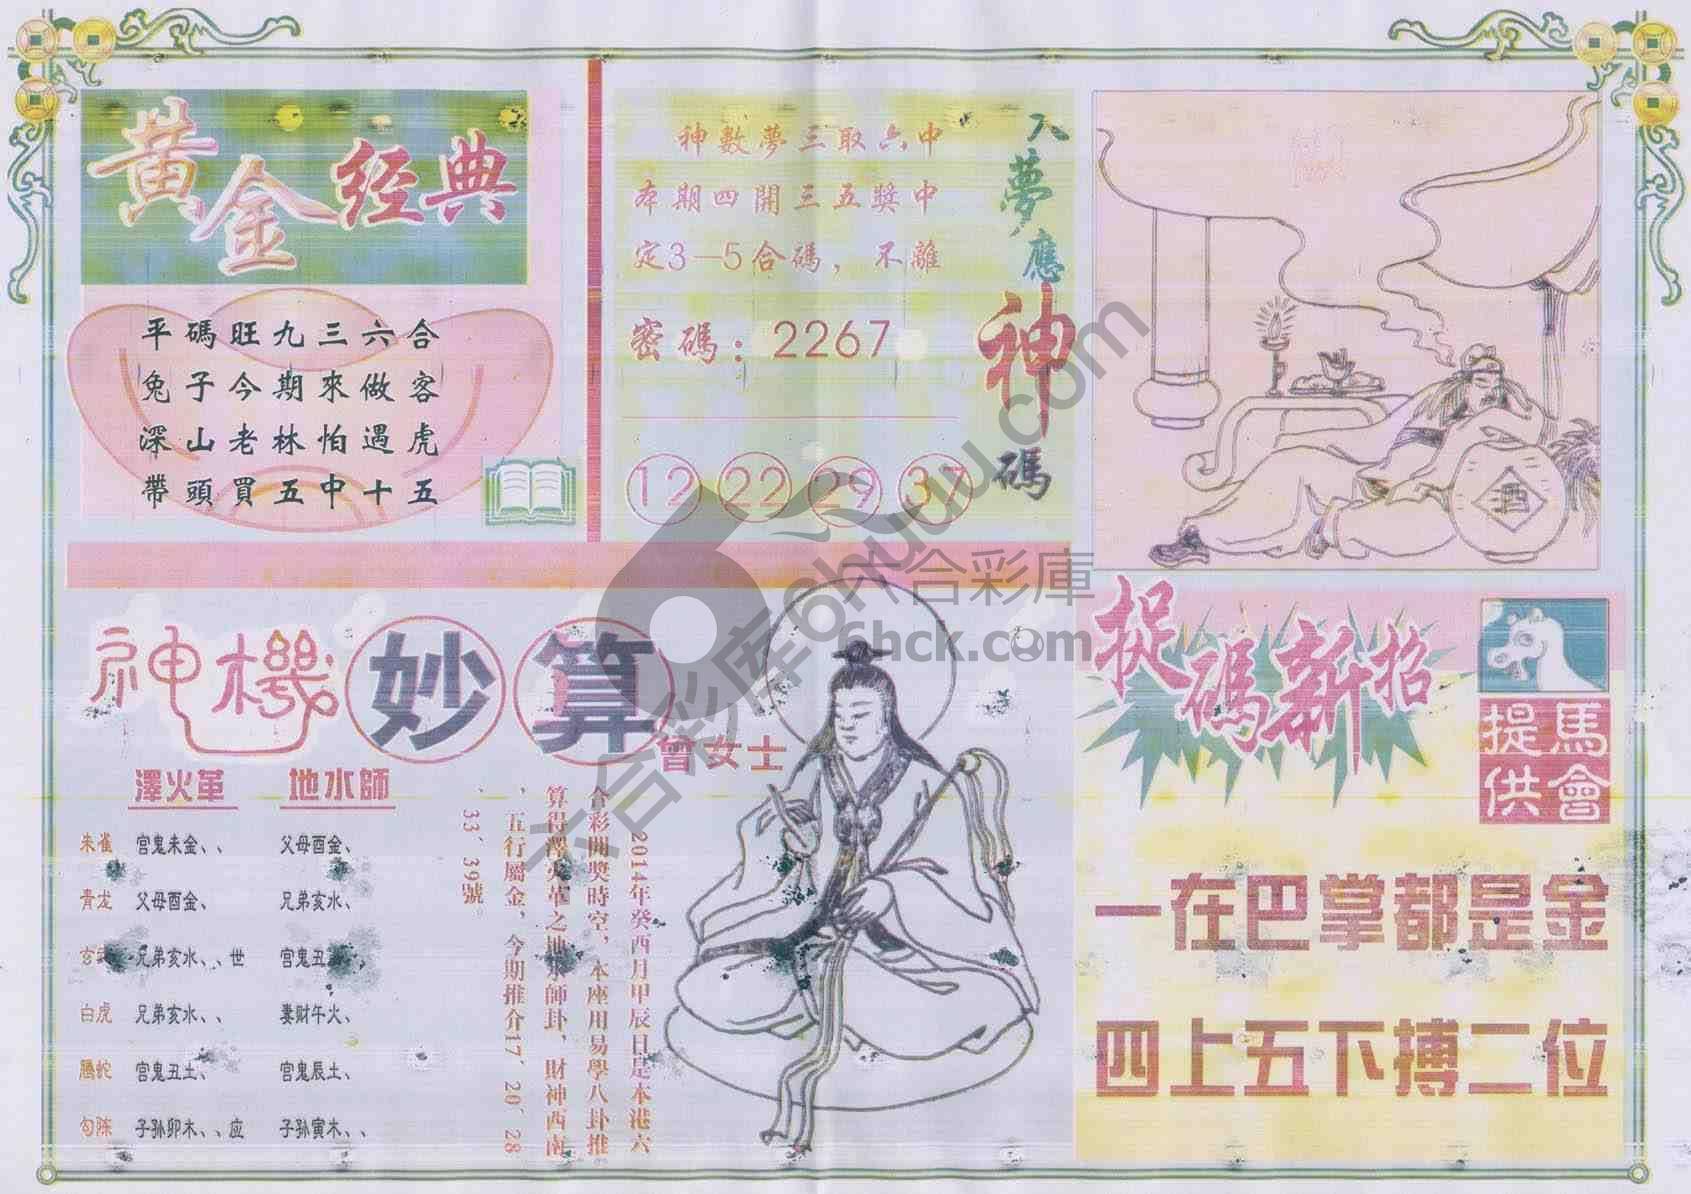 黄金经典
平碼旺九三六合
兔子今期來做客
深山老林怕遇虎
帶頭買五中十五
入夢應神碼
神數夢三取六中
本期四開三五獎中
定3—5合碼，不離
密碼：2267
12 22 29 37
酒
神機妙算
曾女士
澤火革 地水師
朱雀 宫鬼未金、、 父母酉金、
青龙 父母酉金、 兄弟亥水、
兄弟亥水、、世 宫鬼丑
白虎 兄弟亥水、、 妻财午火、
腾蛇 宫鬼丑土、 宫鬼辰土、
勾陈 子孙卯木、、应 子孙寅木、、
2014年癸酉月甲辰日是本港六
合彩開獎時空，本座用易學八卦推
算得澤火革之地水師卦，財神西南
，五行屬金，今期推介17、20、28
、33、39號。
捉碼新招
馬會提供
一在巴掌都是金
四上五下搏二位
六合彩庫
6hck.com
六合彩库6hkuuu.com